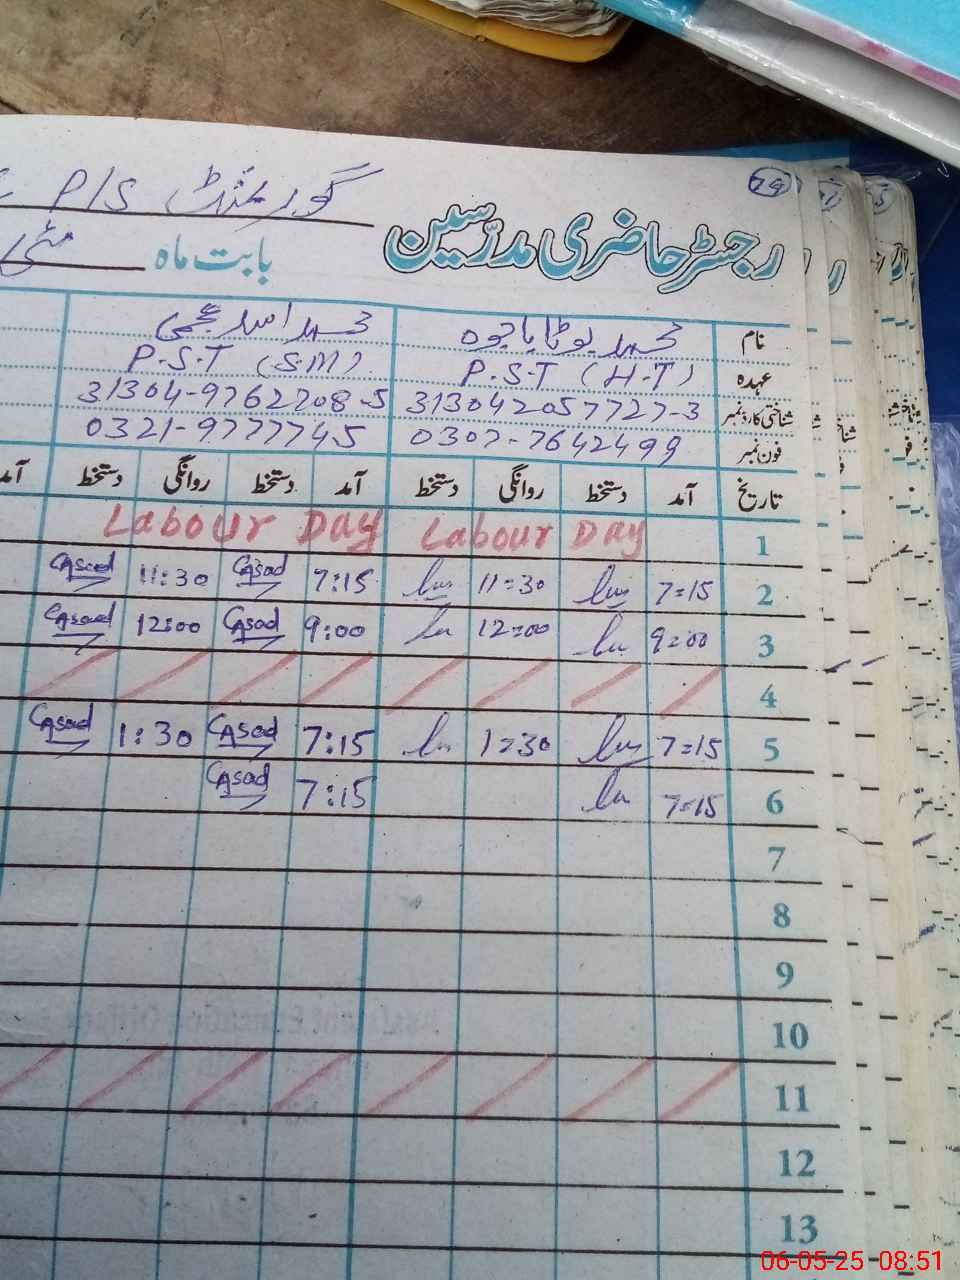 79
گورنمنٹ P/S
رجسٹر حاضری مدرسین
بابت ماہ مئی
نام محمد بوٹا باجوہ محمد اسد
عہدہ P.S.T (H.T) P.S.T (SM)
شناختی کارڈ نمبر 313042057727-3 31304-9762208-5
فون نمبر 0307-7642499 0321-9777745
تاریخ آمد دستخط روانگی دستخط آمد دستخط روانگی دستخط آمد
1 Labour Day Labour Day
2 7=15 11=30 7:15 Asad 11:30 Asad
3 9=00 12=00 9:00 Asad 12:00 Asad
4
5 7=15 1=30 7:15 Asad 1:30 Asad
6 7=15 7:15 Asad
7
8
9
10
11
12
13
06-05-25 08:51